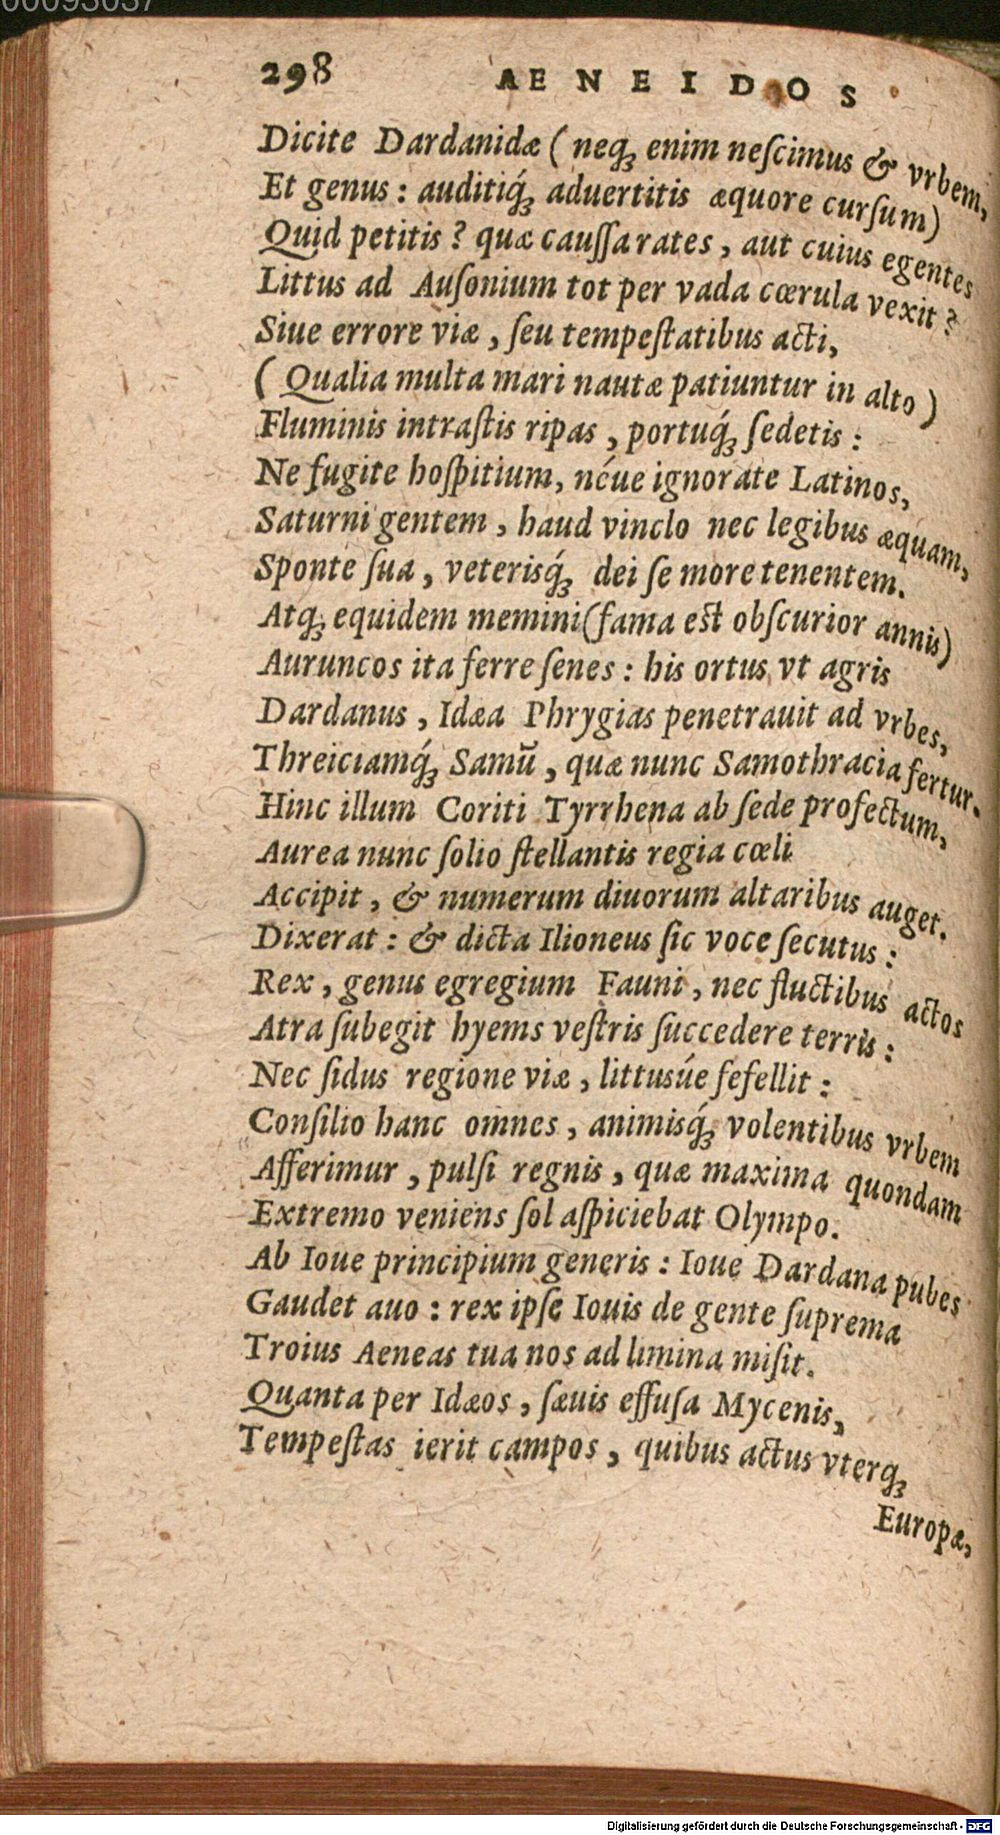 298 AENEIDOS
Dicite Dardanidæ ( neqꝫ enim neſcimus & vrbem,
Et genus : auditiq́ꝫ aduertitis æquore curſum)
Quid petitis ? quæ cauſſa rates , aut cuius egentes
Littus ad Auſonium tot per vada cœrula vexit ?
Siue errore viæ , ſeu tempeſtatibus acti,
( Qualia multa mari nautæ patiuntur in alto )
Fluminis intraſtis ripas , portuq́ꝫ ſedetis :
Ne fugite hoſpitium, néue ignorate Latinos,
Saturni gentem , haud vinclo nec legibus æquam,
Sponte ſua , veterisq́ꝫ dei ſe more tenentem.
Atqꝫ equidem memini(fama eſt obſcurior annis)
Auruncos ita ferre ſenes : his ortus vt agris
Dardanus , Idæa Phrygias penetrauit ad vrbes,
Threiciamq́ꝫ Samū , quæ nunc Samothracia fertur.
Hinc illum Coriti Tyrrhena ab ſede profectum,
Aurea nunc ſolio ſtellantis regia cœli
Accipit , & numerum diuorum altaribus auget.
Dixerat : & dicta Ilioneus ſic voce ſecutus :
Rex , genus egregium Fauni , nec fluctibus actos
Atra ſubegit hyems veſtris ſuccedere terris :
Nec ſidus regione viæ , littusúe fefellit :
Conſilio hanc omnes , animisq́ꝫ volentibus vrbem
Afferimur , pulſi regnis , quæ maxima quondam
Extremo veniens ſol aſpiciebat Olympo.
Ab Ioue principium generis : Ioue Dardana pubes
Gaudet auo : rex ipſe Iouis de gente ſuprema
Troius Aeneas tua nos ad limina miſit.
Quanta per Idæos , ſæuis effuſa Mycenis,
Tempeſtas ierit campos , quibus actus vterqꝫ
Europæ,
Digitalisierung gefördert durch die Deutsche Forschungsgemeinschaft - DFG